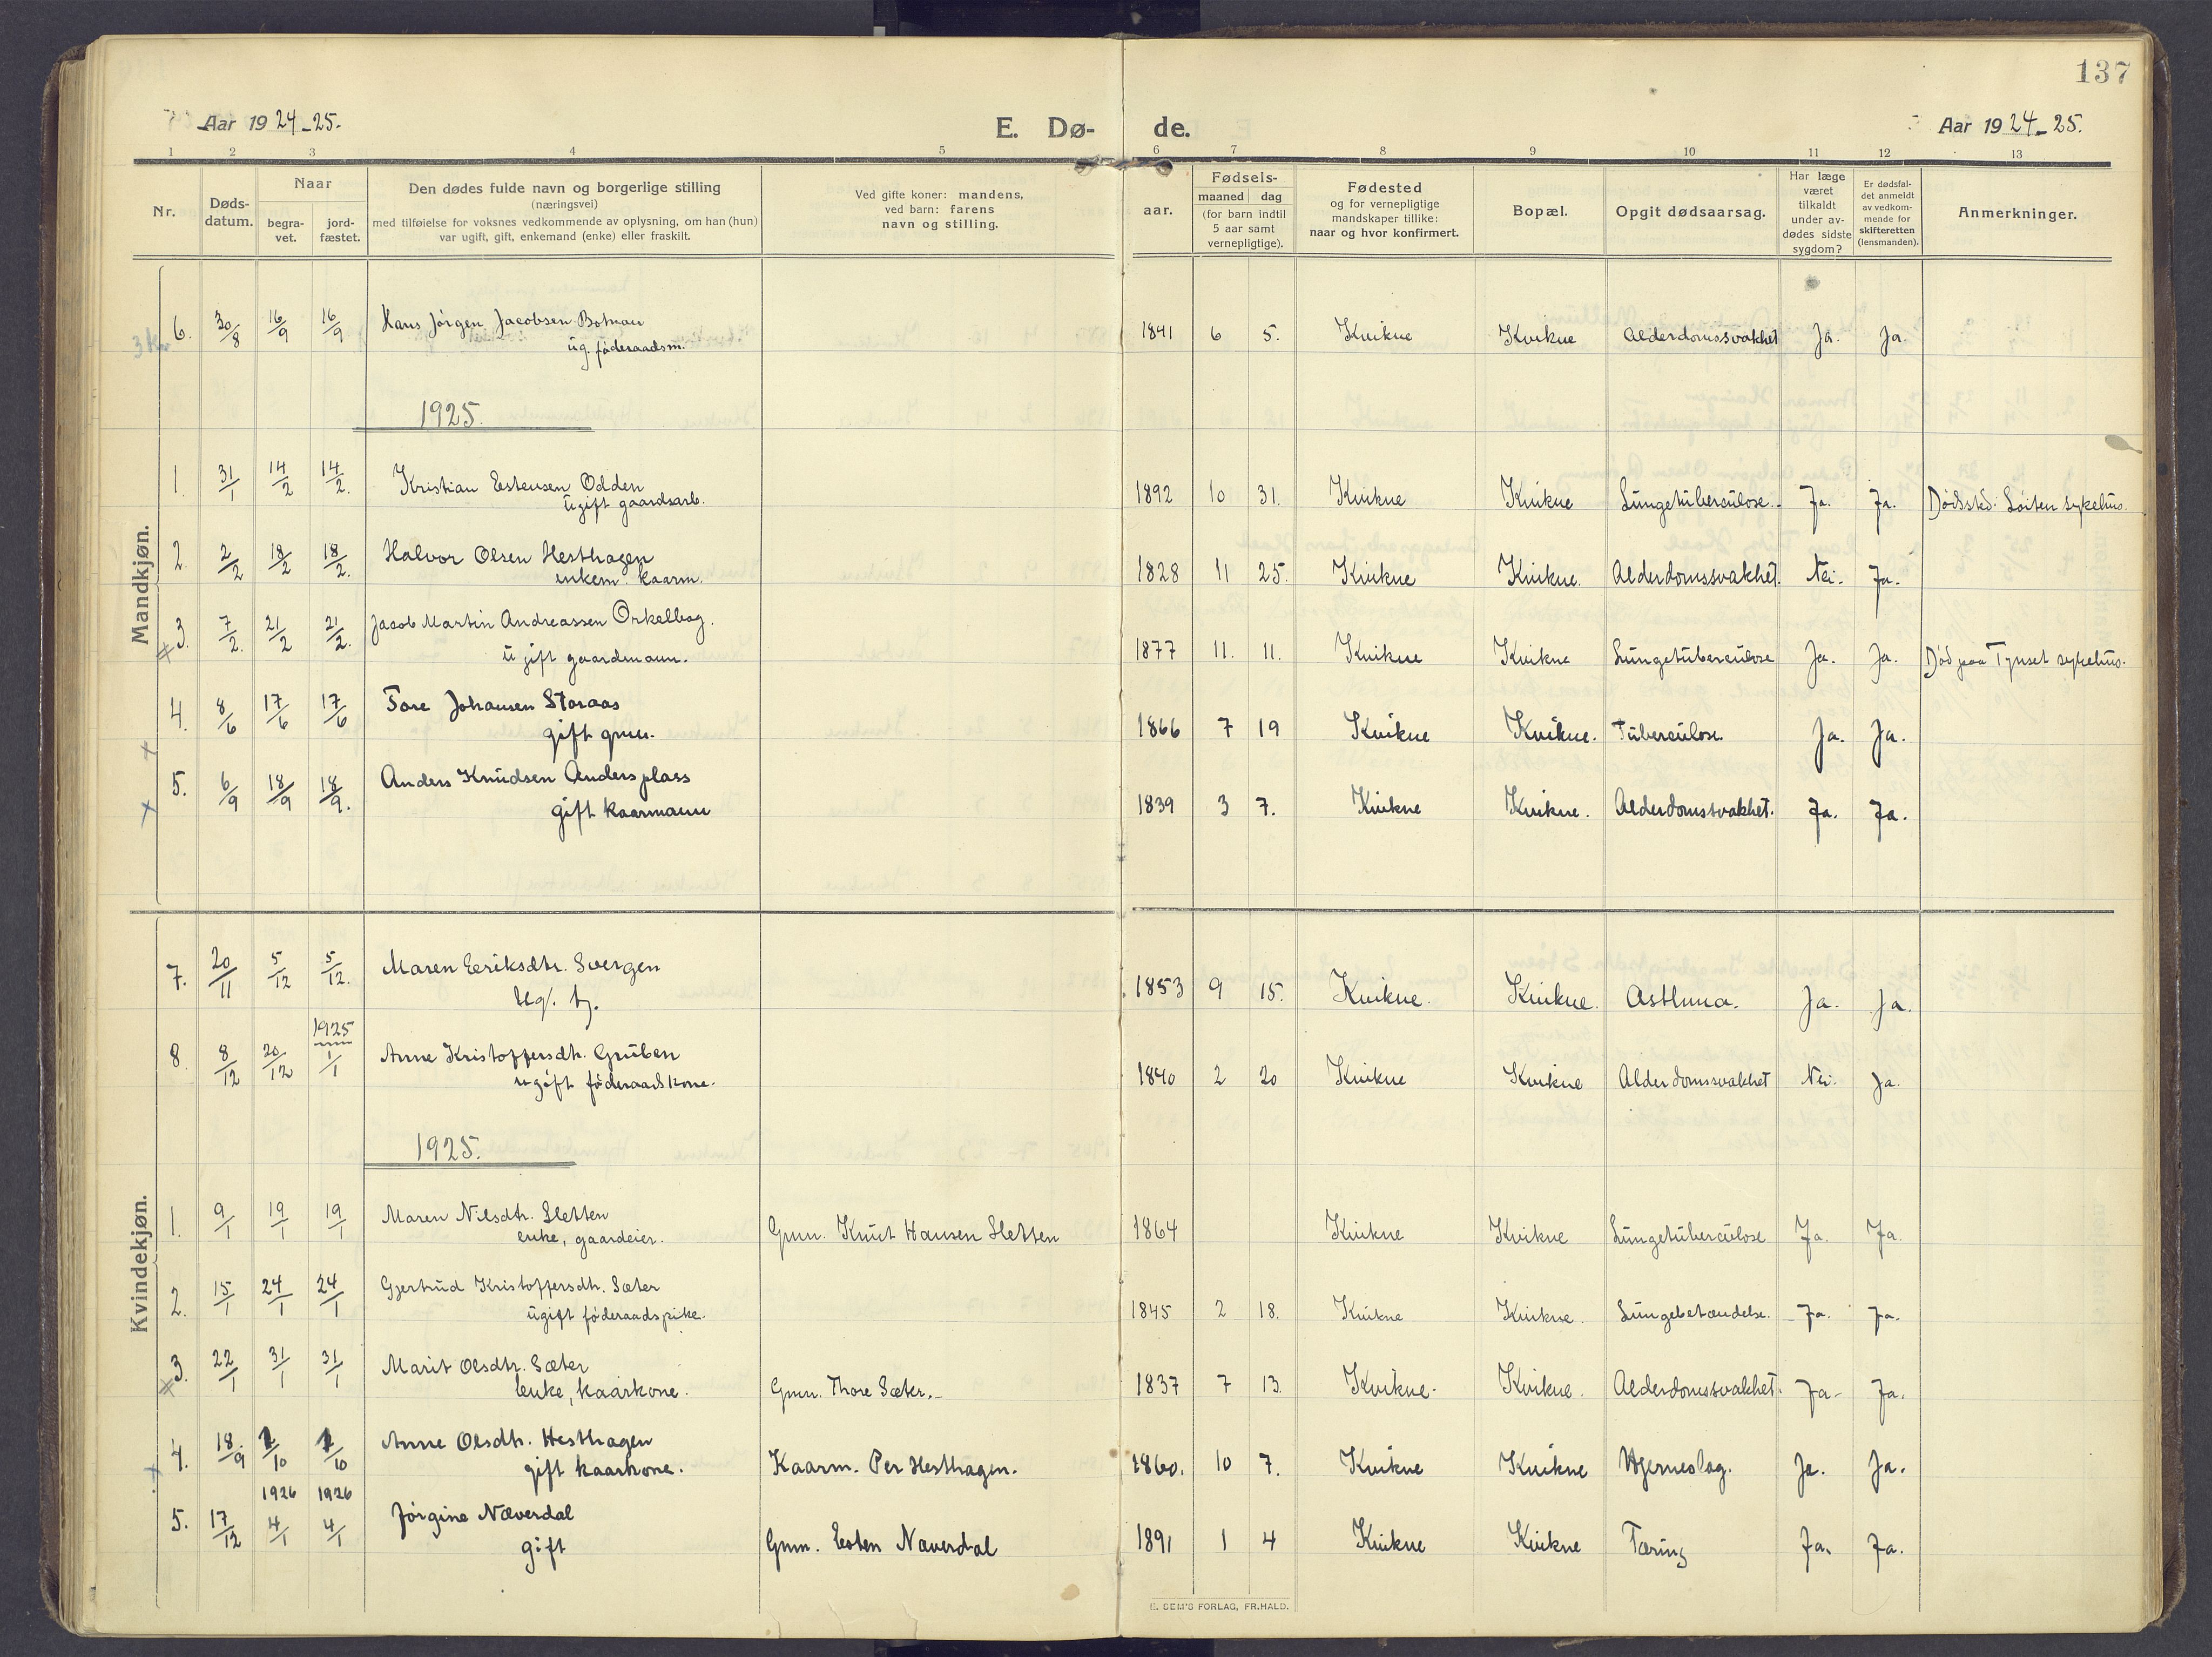 137
Aar 1924-25. E. Dø- de. Aar 1924-25.
1 2 3 4 5 6 7 8 9 10 11 12 13
Nr.
Døds-
datum.
Naar
begra-
vet.
jord-
fæstet.
Den dødes fulde navn og borgerlige stilling
(næringsvei)
med tilføielse for voksnes vedkommende av oplysning, om han (hun)
var ugift, gift, enkemand (enke) eller fraskilt.
Ved gifte koner: mandens,
ved barn: farens
navn og stilling.
Fødsels-
aar.
maaned dag
(for barn indtil
5 aar samt
vernepligtige).
Fødested
og for vernepligtige
mandskaper tillike:
naar og hvor konfirmert.
Bopæl.
Opgit dødsaarsag.
Har læge
været
tilkaldt
under av-
dødes sidste
sygdom?
Er dødsfal-
det anmeldt
av vedkom-
mende for
skifteretten
(lensmanden).
Anmerkninger.
Mandkjøn.
6. 30/8 16/9 16/9 Hans Jørgen Jacobsen 1841 6 5. Kvikne Kvikne Alderdomssvakhet Ja. Ja.
ug. føderaadsm.
1925.
1. 31/1 14/2 14/2. Kristian Estensen Odden 1892 10 31. Kvikne Kvikne Lungetuberculose. Ja. Ja. Dødssted: Løiten sykehus.
ugift gaardsarb.
2. 2/2 18/2 18/2. Halvor Olsen Hesthagen 1828 11 25. Kvikne Kvikne. Alderdomssvakhet. Nei. Ja.
enkem. kaarm.
3. 7/2. 21/2 21/2. Jacob Martin Andreassen Orkelbog. 1877 11. 11. Kvikne Kvikne Lungetuberculose Ja. Ja. Død paa Tynset sykehus.
ugift gaardmann.
4. 8/6 17/6 17/6 Tore Johansen Storaas 1866 7 19 Kvikne Kvikne. Tuberculose. Ja. Ja.
gift gmn.
5. 6/9 18/9 18/9. Anders Knudsen Andersplass 1839 3 7. Kvikne Kvikne. Alderdomssvakhet. Ja. Ja.
gift kaarmann
Kvindekjøn.
7. 20/11 5/12 5/12. Maren Eriksdtr. Svergen 1853 9 15. Kvikne. Kvikne. Asthma. Ja. Ja.
Ug. tj.
1925
8. 8/12 20/12 1/1 Anne Kristoffersdtr. Gruben 1840 2 20 Kvikne Kvikne Alderdomssvakhet Nei. Ja.
ugift føderaadskone.
1925.
1. 9/1 19/1 19/1 Maren Nilsdtr. Sletten Gmn. Knut Hansen Sletten 1864 Kvikne Kvikne Lungetuberculose Ja. Ja.
enke, gaardeier.
2. 15/1 24/1 24/1 Gjertrud Kristoffersdtr. Sæter 1845 2 18. Kvikne Kvikne. Lungebetændelse. Ja. Ja.
ugift føderaadspike.
3. 22/1 31/1 31/1 Marit Olsdtr. Sæter Gmn. Thore Sæter. 1837 7 13. Kvikne. Kvikne. Alderdomssvakhet. Ja Ja.
Enke, kaarkone.
4. 18/9 1/10 1/10 Anne Olsdtr. Hesthagen Kaarm. Per Hesthagen. 1860. 10 7. Kvikne Kvikne Hjerneslag. Ja. Ja.
gift kaarkone.
1926 1926
5. 17/12 4/1 4/1 Jørgine Næverdal Gmn. Esten Næverdal 1891 1 4 Kvikne Kvikne Tæring Ja. Ja.
gift
E. SEM'S FORLAG, FR.HALD.